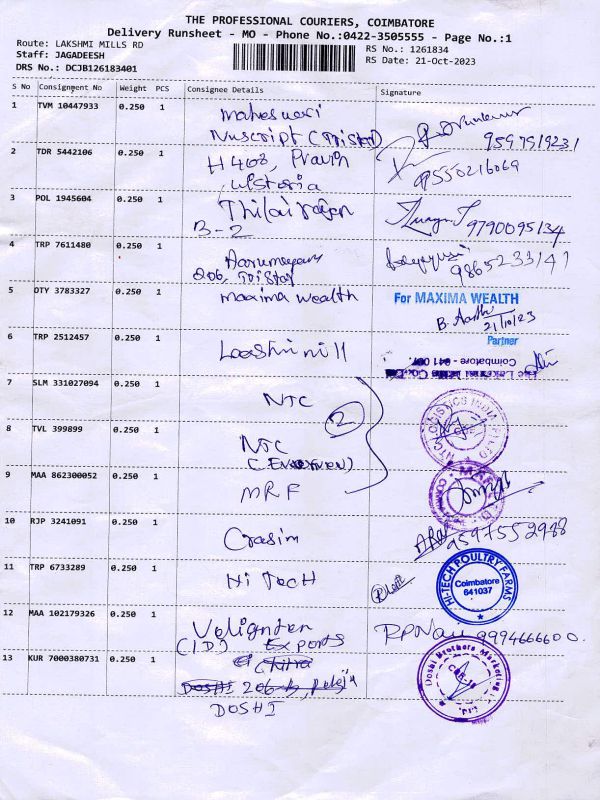 THE PROFESSIONAL COURIERS, COIMBATORE
Delivery Runsheet - MO - Phone No.:0422-3505555 - Page No.:1
Route: LAKSHMI MILLS RD
Staff: JAGADEESH
DRS No.: DCJB126183401
RS No.: 1261834
RS Date: 21-Oct-2023
S No Consignment No Weight PCS Consignee Details Signature
1 TVM 10447933 0.250 1
9597519231
2 TDR 5442106 0.250 1 H468, Pravin
9550216069
3 POL 1945604 0.250 1 Thilai
B-2
9790095134
4 TRP 7611480 0.250 1
206,
9865233141
5 OTY 3783327 0.250 1 Maxima wealth
For MAXIMA WEALTH
21/10/23
Partner
6 TRP 2512457 0.250 1
Coimbatore - 641 007.
7 SLM 331027094 0.250 1 NTC
2
8 TVL 399899 0.250 1 NTC
9 MAA 862300052 0.250 1 MRF
10 RJP 3241091 0.250 1 Grasim
9597552988
11 TRP 6733289 0.250 1 Hi Tech
HI-TECH POULTRY FARMS
Coimbatore
641037
12 MAA 102179326 0.250 1
(ID) EXPORTS
9994666600
13 KUR 7000380731 0.250 1
Doshi Brothers Marketing
CBE-18
DOSHI